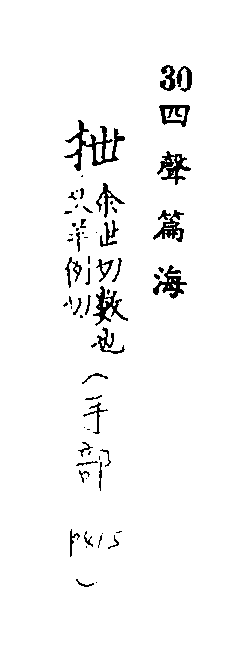 30四聲篇海
抴余世切數也
又羊例切
(手部 p415)